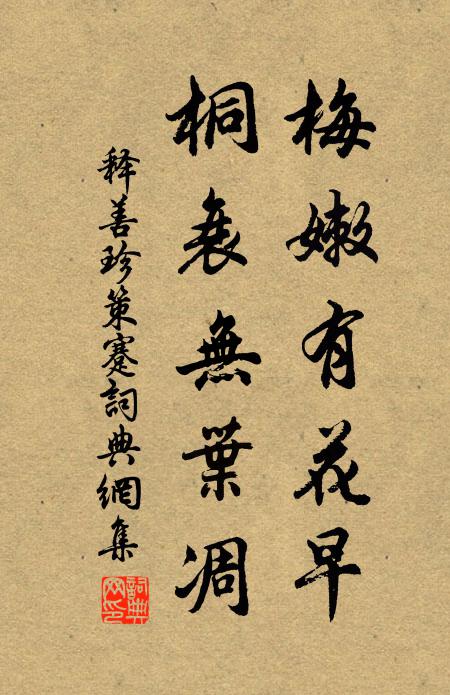 梅嫩有花早
桐衰無葉凋
释善珍策蹇詞典網集
詞典網印